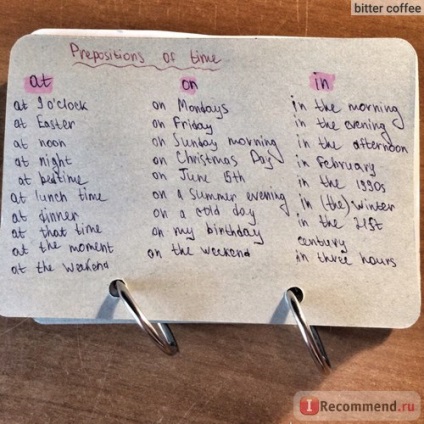 bitter coffee
Prepositions of time
at
at 9 o'clock
at Easter
at noon
at night
at bedtime
at lunch time
at dinner
at that time
at the moment
at the weekend
on
on Mondays
on Friday
on Sunday morning
on Christmas Day
on June 15th
on a summer evening
on a cold day
on my birthday
on the weekend
in
in the morning
in the evening
in the afternoon
in February
in the 1990s
in (the) winter
in the 21st
century
in three hours
IRecommend.ru